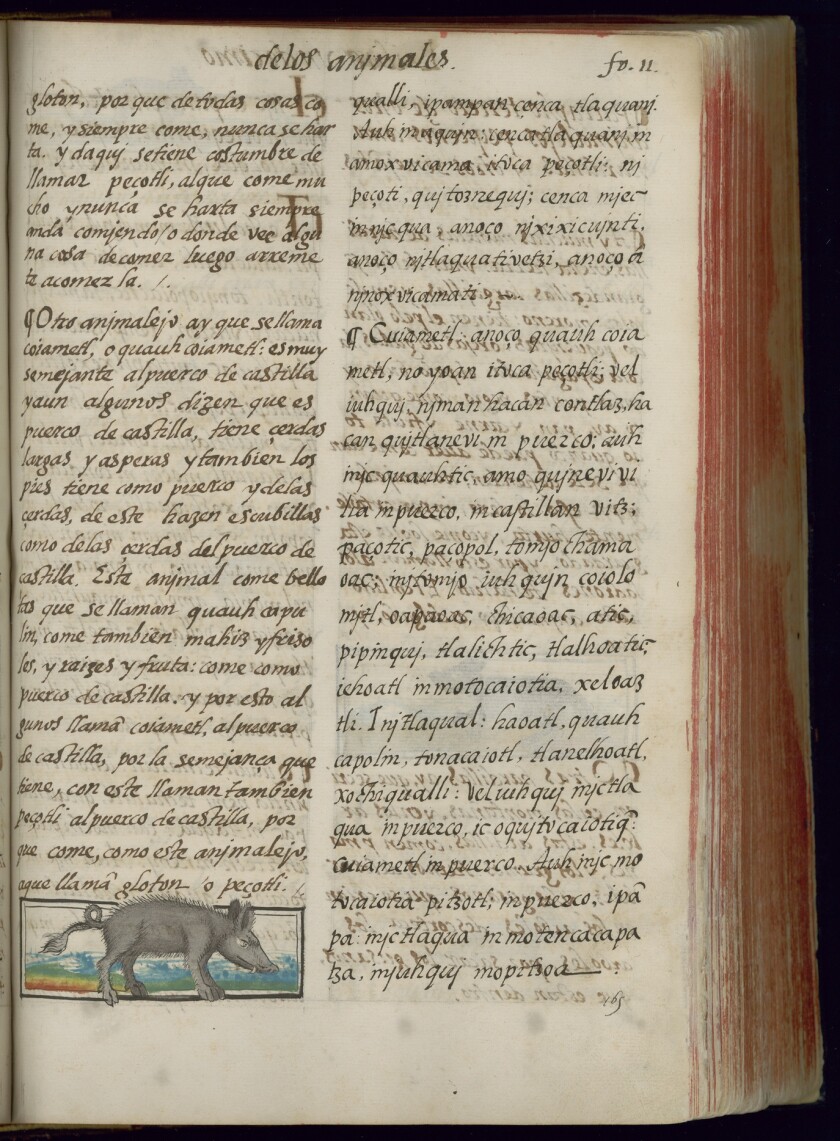 delos animales.
fo. 11.
gloton, por que de todas cosas co
me, y siempre come, nunca se har
ta. y daquj se tiene costumbre de
llamar peçotli, al que come mu
cho y nunca se harta siempre
anda comjendo/o donde vee algu
na cosa de comer luego arreme
te acomerla. /.
¶ Otro anjmalejo ay que se llama
coiametl, o quauh coiametl: es muy
semejante al puerco de castilla
y aun algunos dizen que es
puerco de castilla, tiene çerdas
largas y asperas y tambien los
pies tiene como puerco y delas
çerdas, de este hazen escubillas
como delas çerdas del puerco de
castilla. Este anjmal come bello
tas que se llaman quauh capu
lin, come tambien mahiz y friso
les, y raizes y fruta: come como
puerco de castilla. y por esto al
gunos llamā coiametl, al puerco
de castilla, por la semejança que
tiene, con este llaman tambien
peçotli al puerco de castilla, por
que come, como este anjmalejo,
aque llamā gloton o peçotli. /.
qualli, ipampan cenca tlaquanj.
Auh in aqujn: cenca tlaquanj in
amoxvicama, itvca peçotli: nj
peçoti, quitoznequj; cenca mjec
in njcqua, anoço njxixicujnti,
anoço njtlaquativetzi, anoço a
njnoxvicamati.
¶ Cuiametl: anoço quauh coia
metl, no yoan itvca peçotli; vel
iuhquj, njman hacan contlaz, ha
can qujtlanevi in puerco; auh
injc quauhtic, amo qujnevivi
lia in puerco, in castillan vitz;
paçotic, pacopol, tomjo chama
oac; injtomjo iuhqujn coiolo
mjtl, oapaoac, chicaoac, atic,
pipinquj, tlalichtic, tlalhoatic,
iehoatl inmotocaiotia, xeloaz
tli. Injtlaqual: haoatl, quauh
capolin, tonacaiotl, tlanelhoatl,
xochiqualli: vel iuhquj injc tla
qua in puerco, ic oqujtvcaiotiq̄
cuiametl in puerco. Auh injc mo
tvcaiotia pitzotl, in puerco, ipā
pa injc tlaqua in motencacapa
tza, injuhquj mopitzoa
465